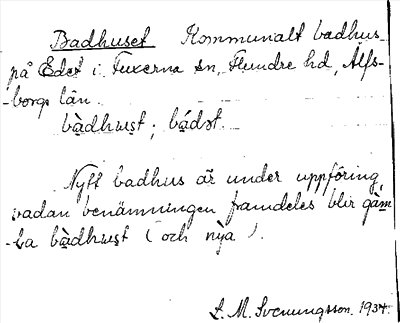 Badhuset Kommunalt badhus
på Edet i Fuxerna sn, Flundre hd, Älfs-
-borgs län.
bàdhuset; bádet.
Nytt badhus är under uppföring,
vadan benämningen framdeles blir gàm-
-la bàdhuset (och nỳa).
S. M. Svenungsson. 1934.